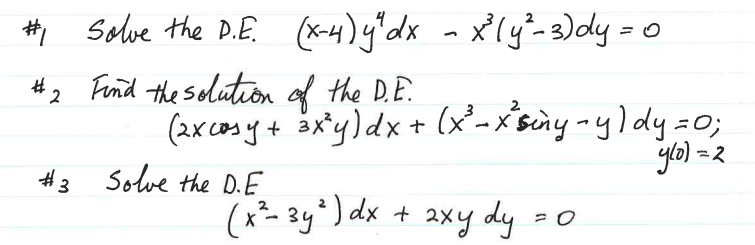 #1 Solve the D.E. (x-4)y⁴dx - x³(y²-3)dy = 0
#2 Find the solution of the D.E.
(2x cos y + 3x²y)dx + (x³-x² sin y - y)dy = 0;
y(0) = 2
#3 Solve the D.E
(x²-3y²)dx + 2xy dy = 0